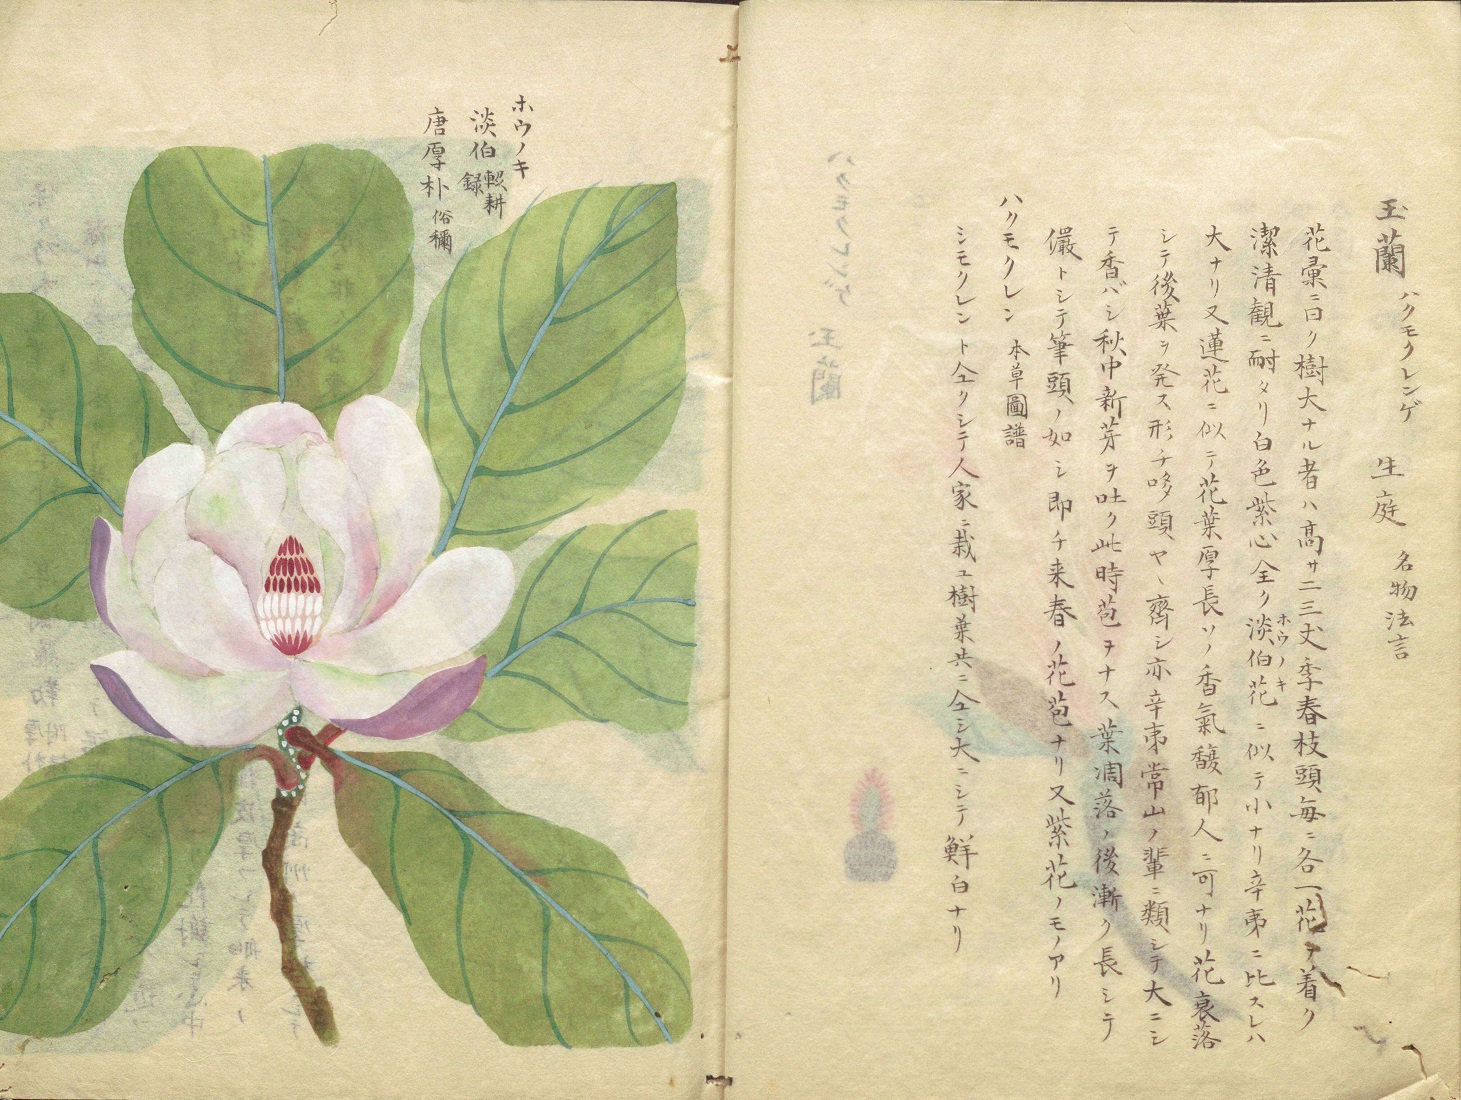 玉蘭 ハクモクレンゲ 生庭 名物法言
花彙ニ曰ク樹大ナル者ハ高サ二三丈季春枝頭毎ニ各一花ヲ着ク
潔清観ニ耐タリ白色紫心全ク淡伯花ニ似テ小ナリ辛夷ニ比スレハ
ホウノキ
大ナリ又蓮花ニ似テ花葉厚長ソノ香氣馥郁人ニ可ナリ花衰落
シテ後葉ヲ発ス形チ哆頭ヤヽ齊シ亦辛夷常山ノ輩ニ類シテ大ニシ
テ香バシ秋中新芽ヲ吐ク此時苞ヲナス葉凋落ノ後漸ク長シテ
儼トシテ筆頭ノ如シ即チ来春ノ花苞ナリ又紫花ノモノアリ
ハクモクレン 本草圖譜
シモクレント仝クシテ人家ニ栽ユ樹葉共ニ仝シ大ニシテ鮮白ナリ
ホウノキ
淡伯 輟耕録
唐厚朴 俗稱